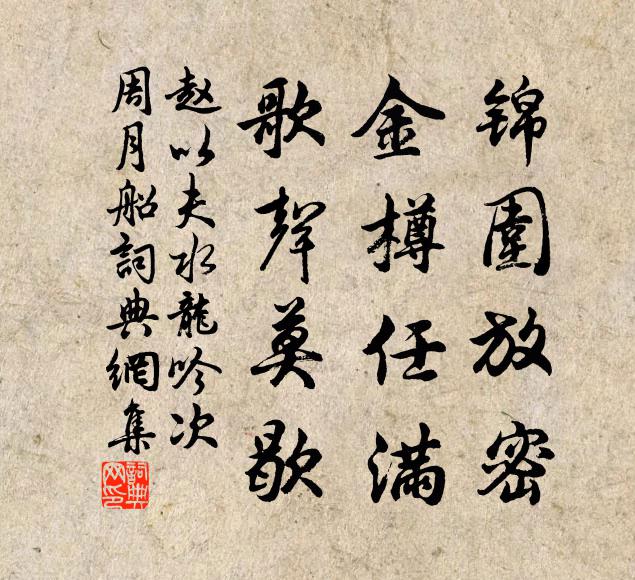 锦圍放密
金樽任滿
歌聲莫歇
赵以夫水龍吟次
周月船詞典網集
詞典
网印